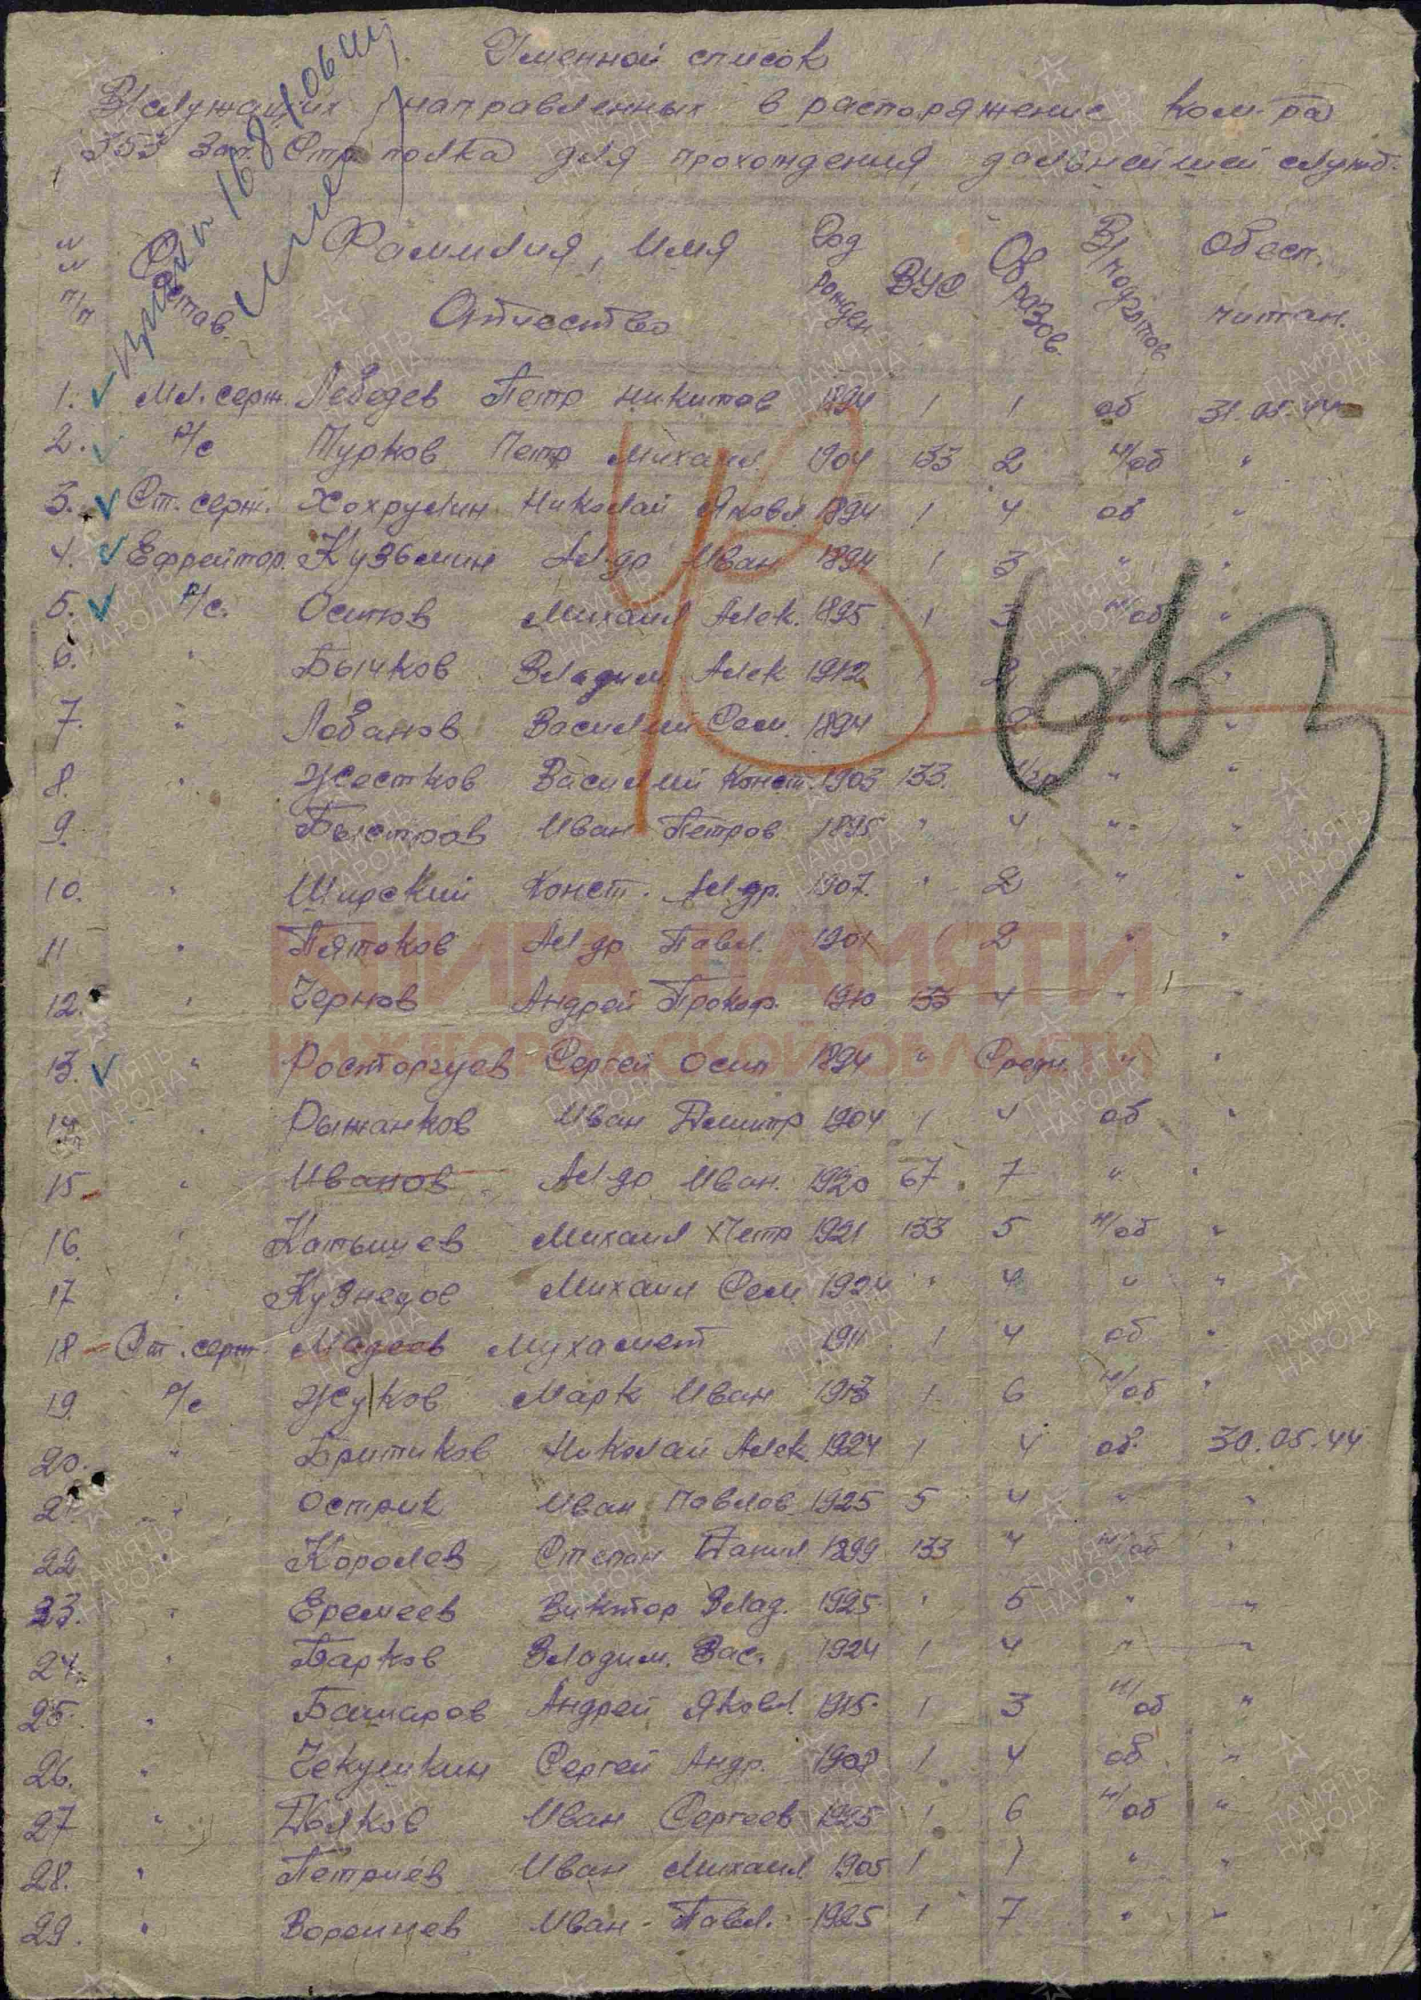 Именной список
В/служащих направленных в распоряжение ком-ра
353 Зап. Стр. полка для прохождения дальнейшей служб.
№ № п/п Состав. Фамилия, Имя Отчество Год рожден. ВУС Образов. В/подготов Обесп. питан.
1. Мл. серж. Лебедев Петр Никитов 1894 1 1 об 31.05.44
2. Р/с Турков Петр Михаил. 1904 133 2 н/об "
3. Ст. серж. Хохрулин Николай Яковл 1894 1 4 об "
4. Ефрейтор. Кузьмин Ал-др Иван 1894 1 3 " "
5. Р/с. Осипов Михаил Алек. 1895 1 3 н/об "
6. " Бычков Владим Алек 1912 1 2 "
7. " Лобанов Василий Сем. 1894 " "
8. " Жестков Василий Конст. 1903 133. " "
9. Быстров Иван Петров 1895 " 4 " "
10. " Ширский Конст. Ал-др. 1907. " 2 " "
11 " Пятаков Ал-др Павл. 1901 1 2 " "
12. " Чернов Андрей Прокор. 1910 133 4 " "
13. " Расторгуев Сергей Осип 1894 " Средн. " "
14 " Рыжанков Иван Дмитр 1904 1 4 об "
15 " Иванов Ал-др Иван. 1920 67 7 " "
16. " Катышев Михаил Петр 1921 133 5 н/об "
17 " Кузнецов Михаил Сем 1924 " 4 " "
18 Ст. серж. Мадеев Мухамет 1911 1 4 об "
19. Р/с Жуков Марк Иван 1913 1 6 н/об "
20. " Бритиков Николай Алек. 1924 1 4 об. 30.05.44
21. " Острик Иван Павлов 1925 5 4 " "
22 " Королев Степан Данил 1899 133 4 н/об "
23. " Еремеев Виктор Влад. 1925 " 5 " "
24. " Барков Владим. Вас. 1924 1 4 " "
25. " Башаров Андрей Яковл. 1915. 1 3 н/об "
26. " Чекушкин Сергей Андр. 1908 1 4 об "
27 " Дьяков Иван Сергеев 1925 1 6 н/об "
28. " Петриев Иван Михаил 1905 1 1 " "
29. " Воронцев Иван Павл. 1925 1 7 " "
КНИГА ПАМЯТИ
НИЖЕГОРОДСКОЙ ОБЛАСТИ
ПАМЯТЬ НАРОДА